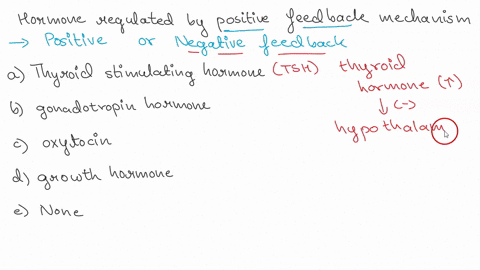 Hormone regulated by positive feedback mechanism
→ Positive or Negative feedback
a) Thyroid stimulating hormone (TSH)
thyroid
hormone (↑)
↓(-)
hypothalam
b) gonadotropin hormone
c) oxytocin
d) growth hormone
e) None